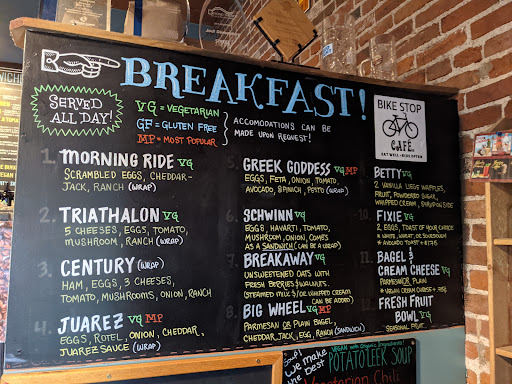 BREAKFAST!
SERVED
ALL DAY!
VG = VEGETARIAN
GF = GLUTEN FREE
MP = MOST POPULAR
ACCOMODATIONS CAN BE
MADE UPON REQUEST!
BIKE STOP
CAFÉ
EAT WELL · RIDE OFTEN
1. MORNING RIDE VG
SCRAMBLED EGGS, CHEDDAR-
JACK, RANCH (WRAP)
2. TRIATHALON VG
5 CHEESES, EGGS, TOMATO,
MUSHROOM, RANCH (WRAP)
3. CENTURY (WRAP)
HAM, EGGS, 3 CHEESES,
TOMATO, MUSHROOMS, ONION, RANCH
4. JUAREZ VG MP
EGGS, ROTEL, ONION, CHEDDAR,
JUAREZ SAUCE (WRAP)
5. GREEK GODDESS VG MP
EGGS, FETA, ONION, TOMATO,
AVOCADO, SPINICH, PESTO (WRAP)
6. SCHWINN VG
EGGS, HAVARTI, TOMATO,
MUSHROOM, ONION, COMES
AS A SANDWICH (CAN BE A WRAP)
7. BREAKAWAY VG
UNSWEETENED OATS WITH
FRESH BERRIES & WALNUTS.
(STEAMED MILK &/OR WHIPPED CREAM
CAN BE ADDED)
8. BIG WHEEL VG MP
PARMESAN OR PLAIN BAGEL,
CHEDDAR, JACK, EGG, RANCH (SANDWICH)
BETTY VG
2 VANILLA LIEGE WAFFLES,
FRUIT, POWDERED SUGAR,
WHIPPED CREAM, SYRUP ON SIDE
10. FIXIE VG
2 EGGS, TOAST OF YOUR CHOICE
WHITE, WHEAT, OR SOURDOUGH
* AVOCADO TOAST + $1.75
11. BAGEL &
CREAM CHEESE VG
PARMESAN OR PLAIN
* VEGAN CREAM CHEESE +.75¢
FRESH FRUIT
BOWL VG
SEASONAL FRUIT
SOUP!
WE MAKE
THE BEST
VEGAN with Organic Ingredients!
POTATO LEEK SOUP
Vegetarian Chili